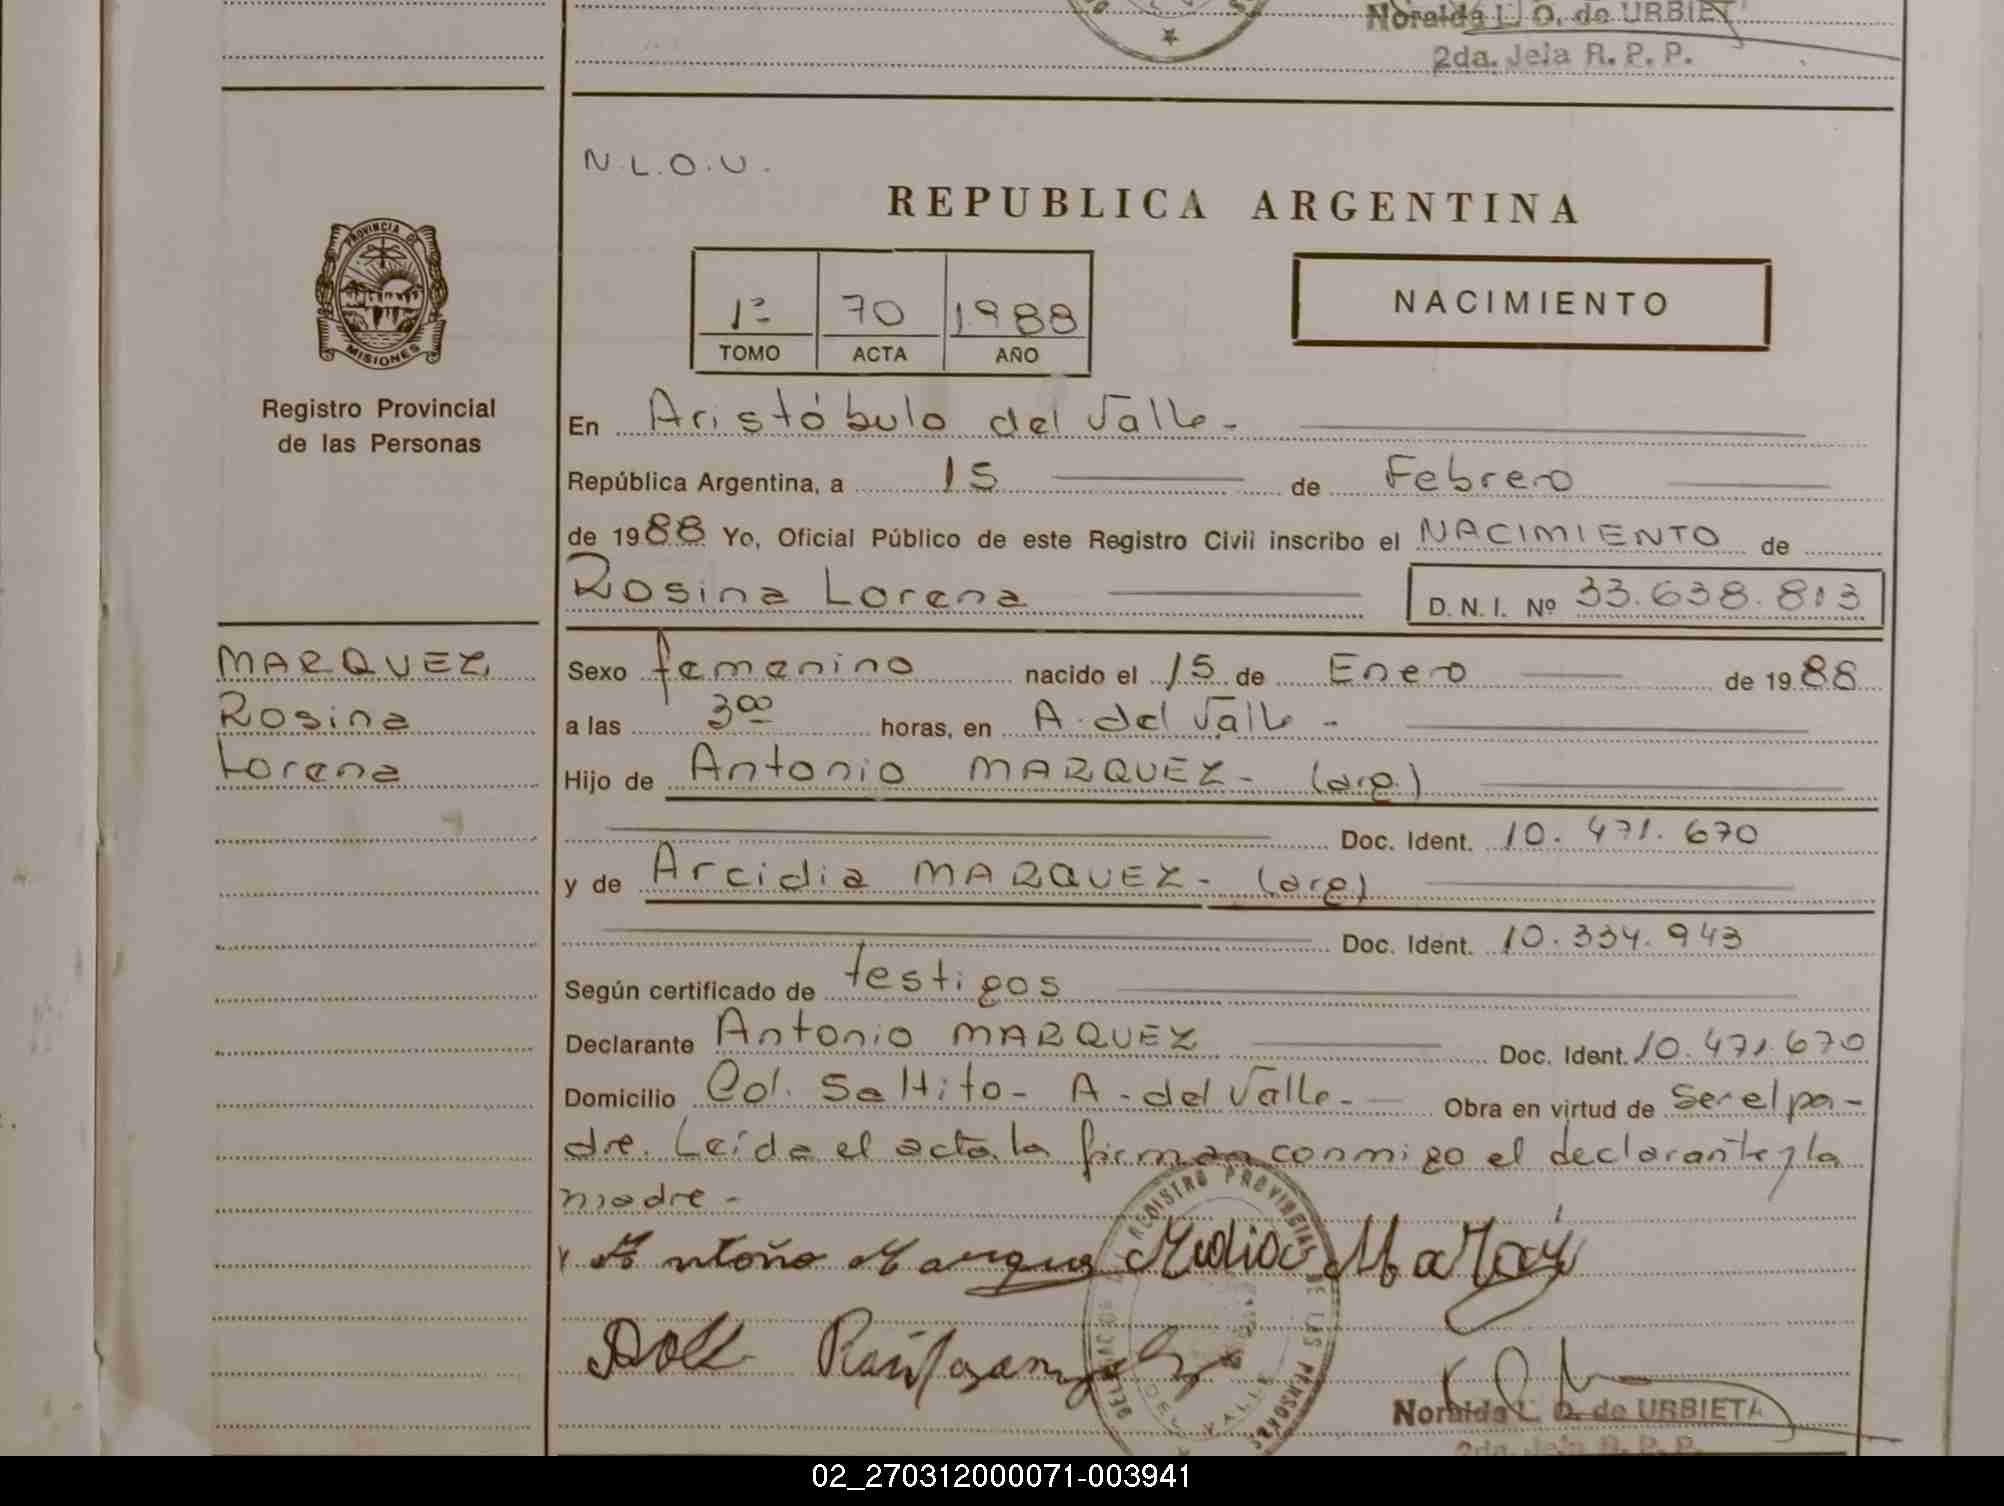 Noralda L. O. de URBIETA
2da. Jefa R. P. P.
N.L.O.U.
REPUBLICA ARGENTINA
PROVINCIA DE
MISIONES
Registro Provincial
de las Personas
1º 70 1988
TOMO ACTA AÑO
NACIMIENTO
En Aristóbulo del Valle-
República Argentina, a 15 de Febrero
de 1988 Yo, Oficial Público de este Registro Civil inscribo el NACIMIENTO de
Rosina Lorena D. N. I. Nº 33.638.813
MARQUEZ,
Rosina
Lorena
Sexo femenino nacido el 15 de Enero de 1988
a las 3 00 horas, en A. del Valle -
Hijo de Antonio MARQUEZ- (arg.)
Doc. Ident. 10. 471. 670
y de Arcidia MARQUEZ- (arg)
Doc. Ident. 10.334.943
Según certificado de testigos
Declarante Antonio MARQUEZ Doc. Ident. 10.471.670
Domicilio Col. Saltito- A. del Valle- Obra en virtud de ser el pa-
dre. Leída el acta la firman conmigo el declarante y la
madre-
REGISTRO PROVINCIAL DE LAS PERSONAS
DEL VALLE
Noralda L. O. de URBIETA
2da. Jefa R. P. P.
02_270312000071-003941